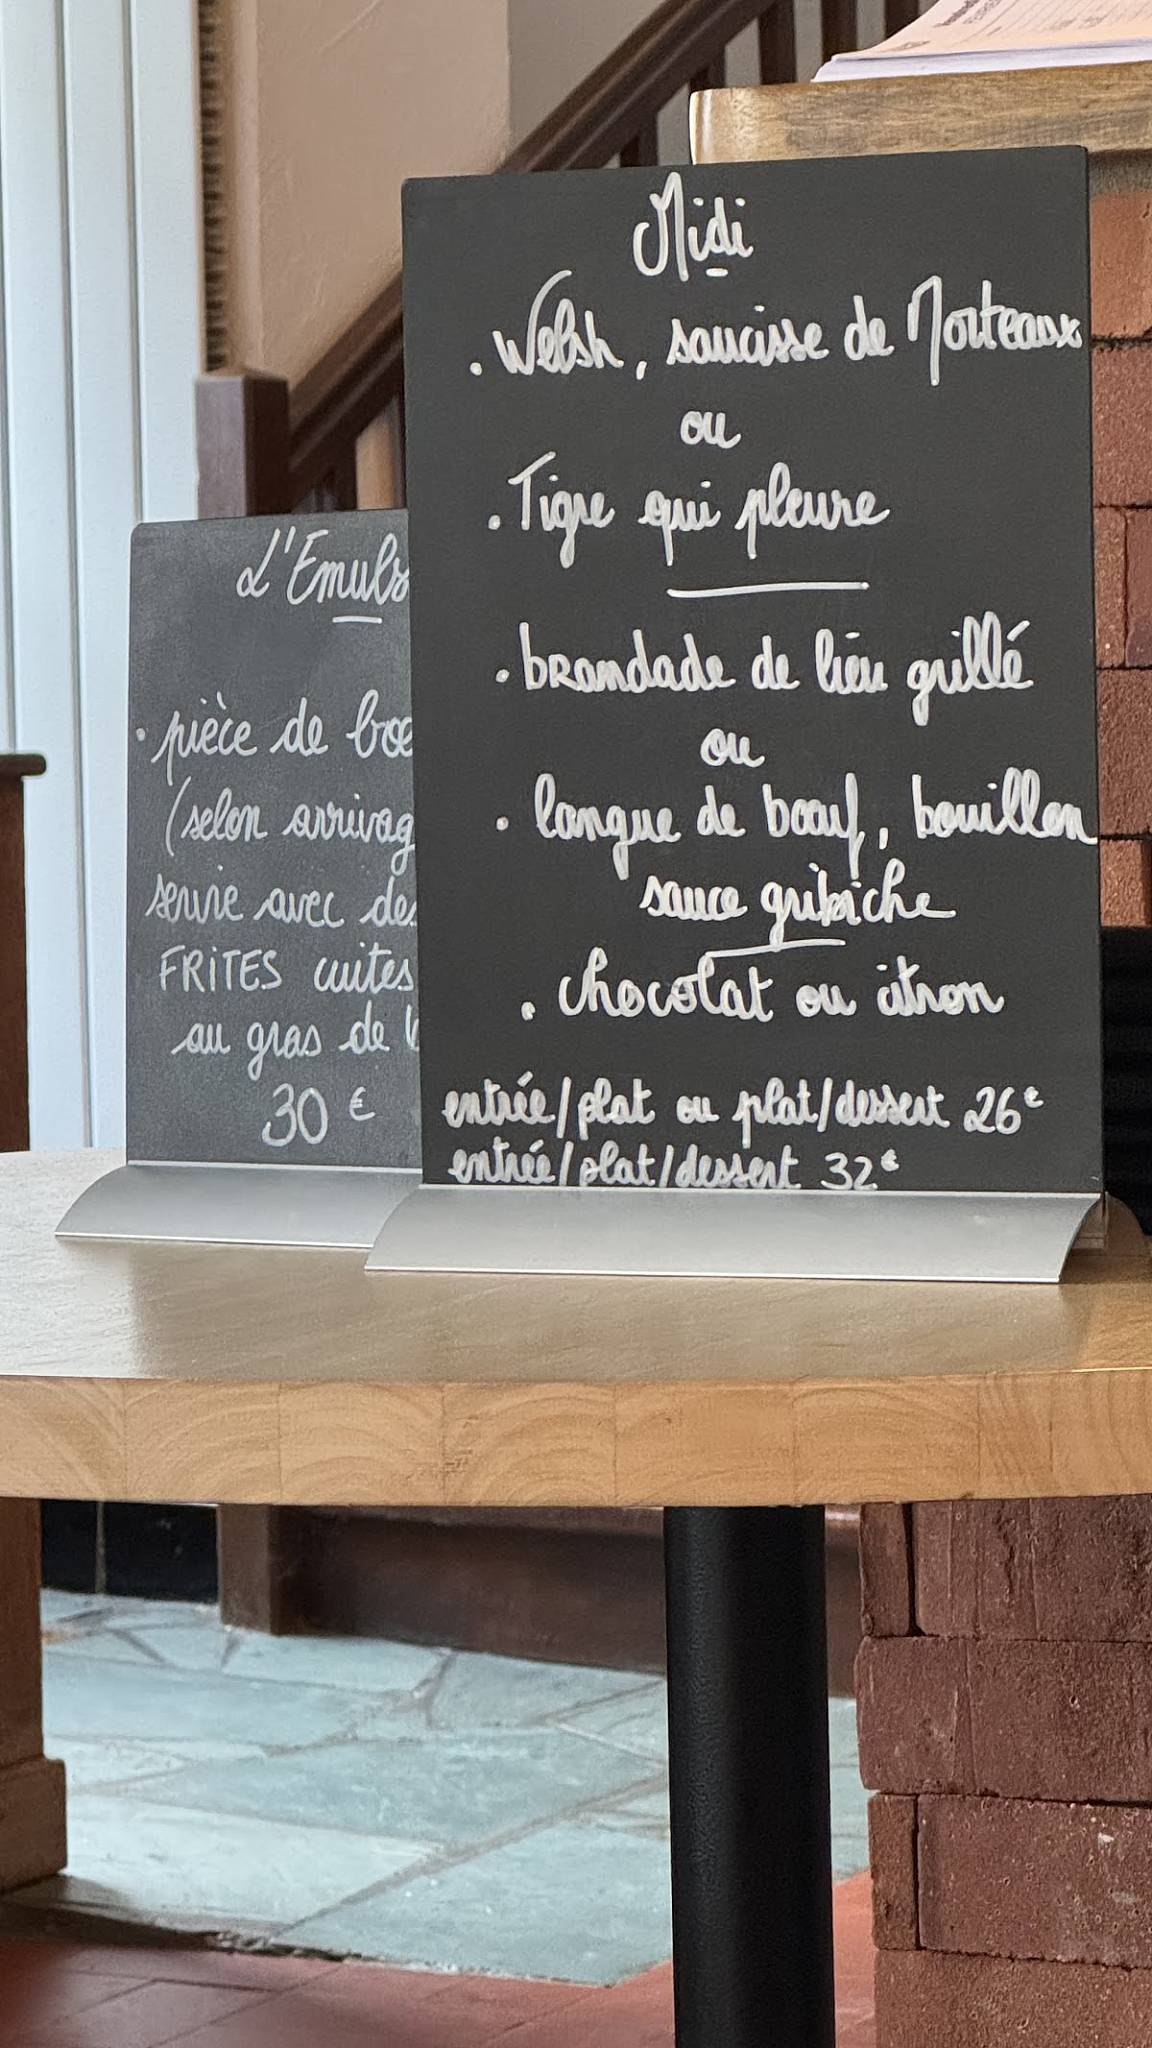 Midi
. Welsh, saucisse de Morteaux
ou
. Tigre qui pleure
. brandade de lieu grillé
ou
. langue de bœuf, bouillon
sauce gribiche
. chocolat ou citron
entrée/plat ou plat/dessert 26€
entrée/plat/dessert 32€
L'Emuls
. pièce de boe
(selon arrivag
servie avec des
FRITES cuites
au gras de
30 €